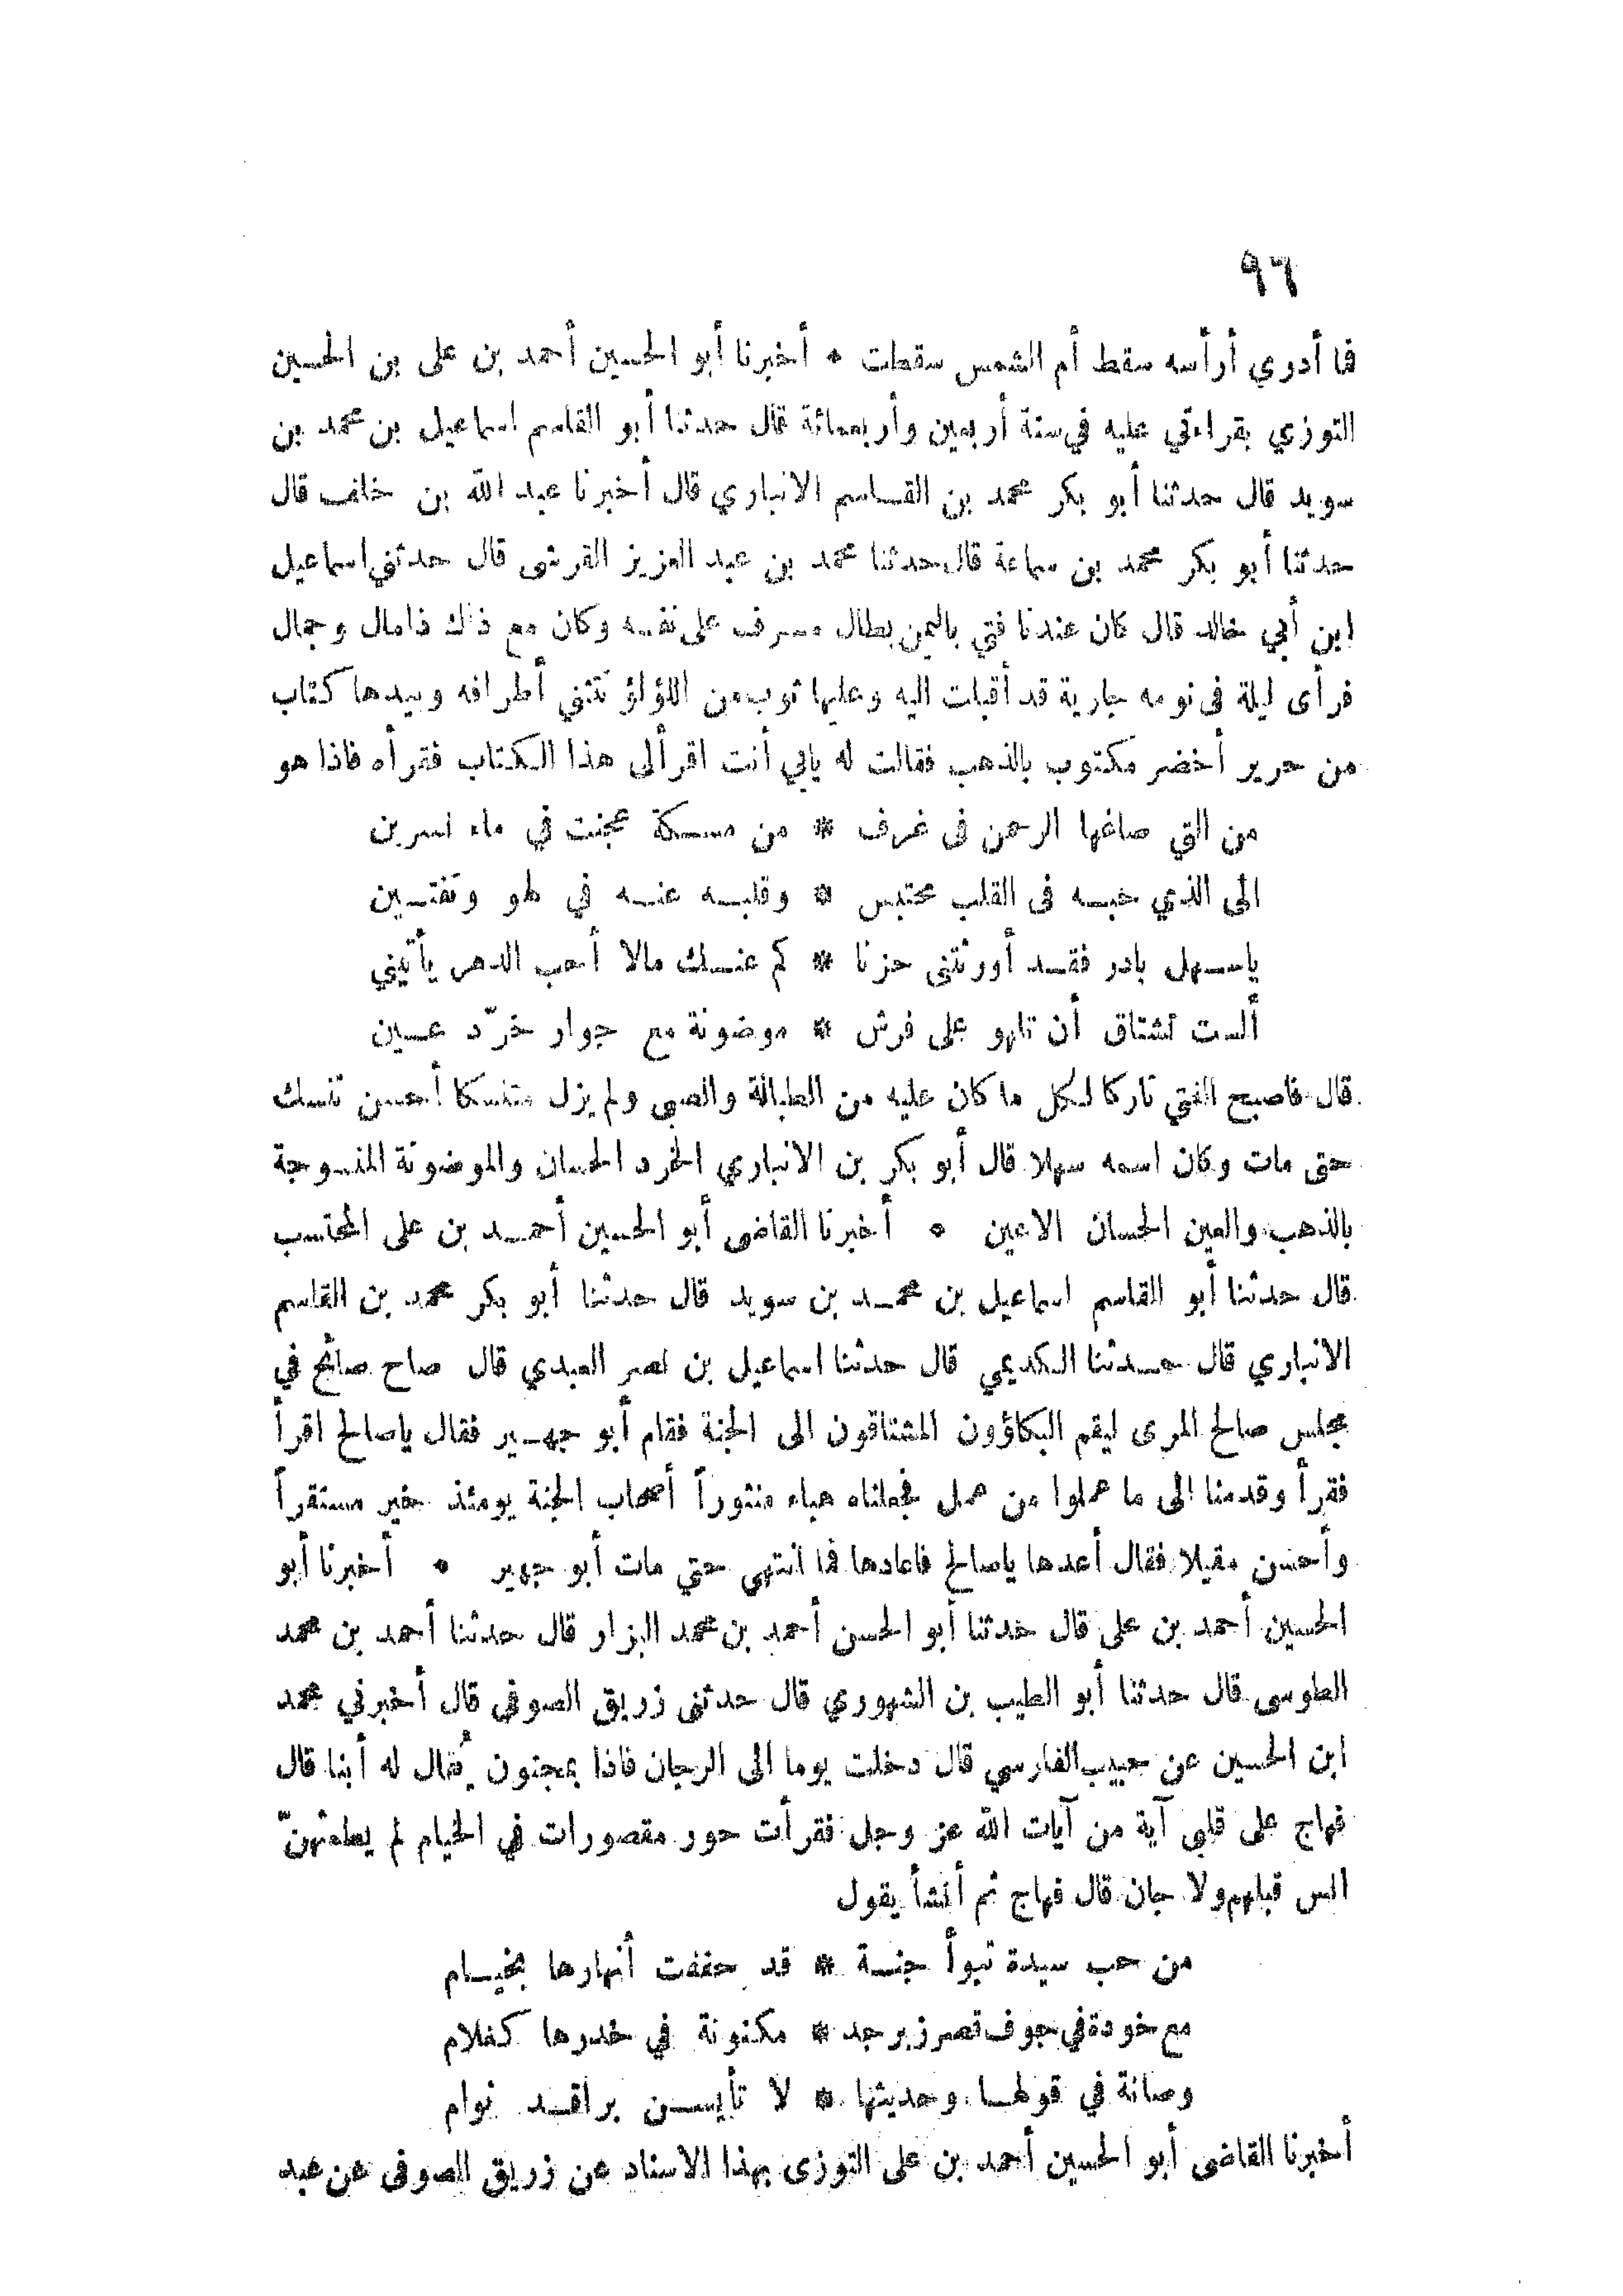 ٩٦
فما أدري أرأسه سقط أم الشمس سقطت * أخبرنا أبو الحسين أحمد بن على بن الحسين
التوزي بقراءتي عليه في سنة أربعين وأربعمائة قال حدثنا أبو القاسم اسماعيل بن محمد بن
سويد قال حدثنا أبو بكر محمد بن القاسم الانباري قال أخبرنا عبد الله بن خلف قال
حدثنا أبو بكر محمد بن سماعة قال حدثنا محمد بن عبد العزيز القرشى قال حدثني اسماعيل
ابن أبي خالد قال كان عندنا فتي باليمن بطال مسرف على نفسه وكان مع ذلك ذا مال وجمال
فرأى ليلة فى نومه جارية قد أقبلت اليه وعليها ثوب من اللؤلؤ تتثني أطرافه وبيدها كتاب
من حرير أخضر مكتوب بالذهب فقالت له يابي أنت اقرألى هذا الكتاب فقرأه فاذا هو
من التي صاغها الرحمن فى غرف * من مسكة عجنت في ماء نسرين
الى الذي حبه فى القلب محتبس * وقلبه عنه في لهو وتفتين
ياسهل بادر فقد أورثتنى حزنا * كم عنك مالا أحب الدهر يأتيني
ألست تشتاق أن تلهو على فرش * موضونة مع جوار خرّد عين
قال فاصبح الفتي تاركا لكل ما كان عليه من البطالة والصبى ولم يزل متنسكا أحسن تنسك
حتى مات وكان اسمه سهلا قال أبو بكر بن الانباري الخرد الحسان والموضونة المنسوجة
بالذهب والعين الحسان الاعين * أخبرنا القاضى أبو الحسين أحمد بن على المحتسب
قال حدثنا أبو القاسم اسماعيل بن محمد بن سويد قال حدثنا أبو بكر محمد بن القاسم
الانباري قال حدثنا الكديمي قال حدثنا اسماعيل بن نصر العبدي قال صاح صائح في
مجلس صالح المرى ليقم البكاؤون المشتاقون الى الجنة فقام أبو جهير فقال ياصالح اقرأ
فقرأ وقدمنا الى ما عملوا من عمل فجعلناه هباء منثوراً أصحاب الجنة يومئذ خير مستقراً
وأحسن مقيلا فقال أعدها ياصالح فاعادها فما انتهى حتي مات أبو جهير * أخبرنا أبو
الحسين أحمد بن على قال حدثنا أبو الحسن أحمد بن محمد البزار قال حدثنا أحمد بن محمد
الطوسى قال حدثنا أبو الطيب بن الشهوري قال حدثنى زريق الصوفى قال أخبرني محمد
ابن الحسين عن حبيب الفارسي قال دخلت يوما الى الرجان فاذا بمجنون فقال له أبنا قال
فهاج على قلبى آية من آيات الله عز وجل فقرأت حور مقصورات في الخيام لم يطمثهنّ
انس قبلهم ولا جان قال فهاج ثم أنشأ يقول
من حب سيدة تبوأ جنة * قد حففت أنهارها بخيام
مع خودة في جوف قصر زبرجد * مكنونة في خدرها كغلام
وصانة في قولها وحديثها * لا تأيسن براقد نوام
أخبرنا القاضى أبو الحسين أحمد بن على التوزى بهذا الاسناد عن زريق الصوفى عن عبد